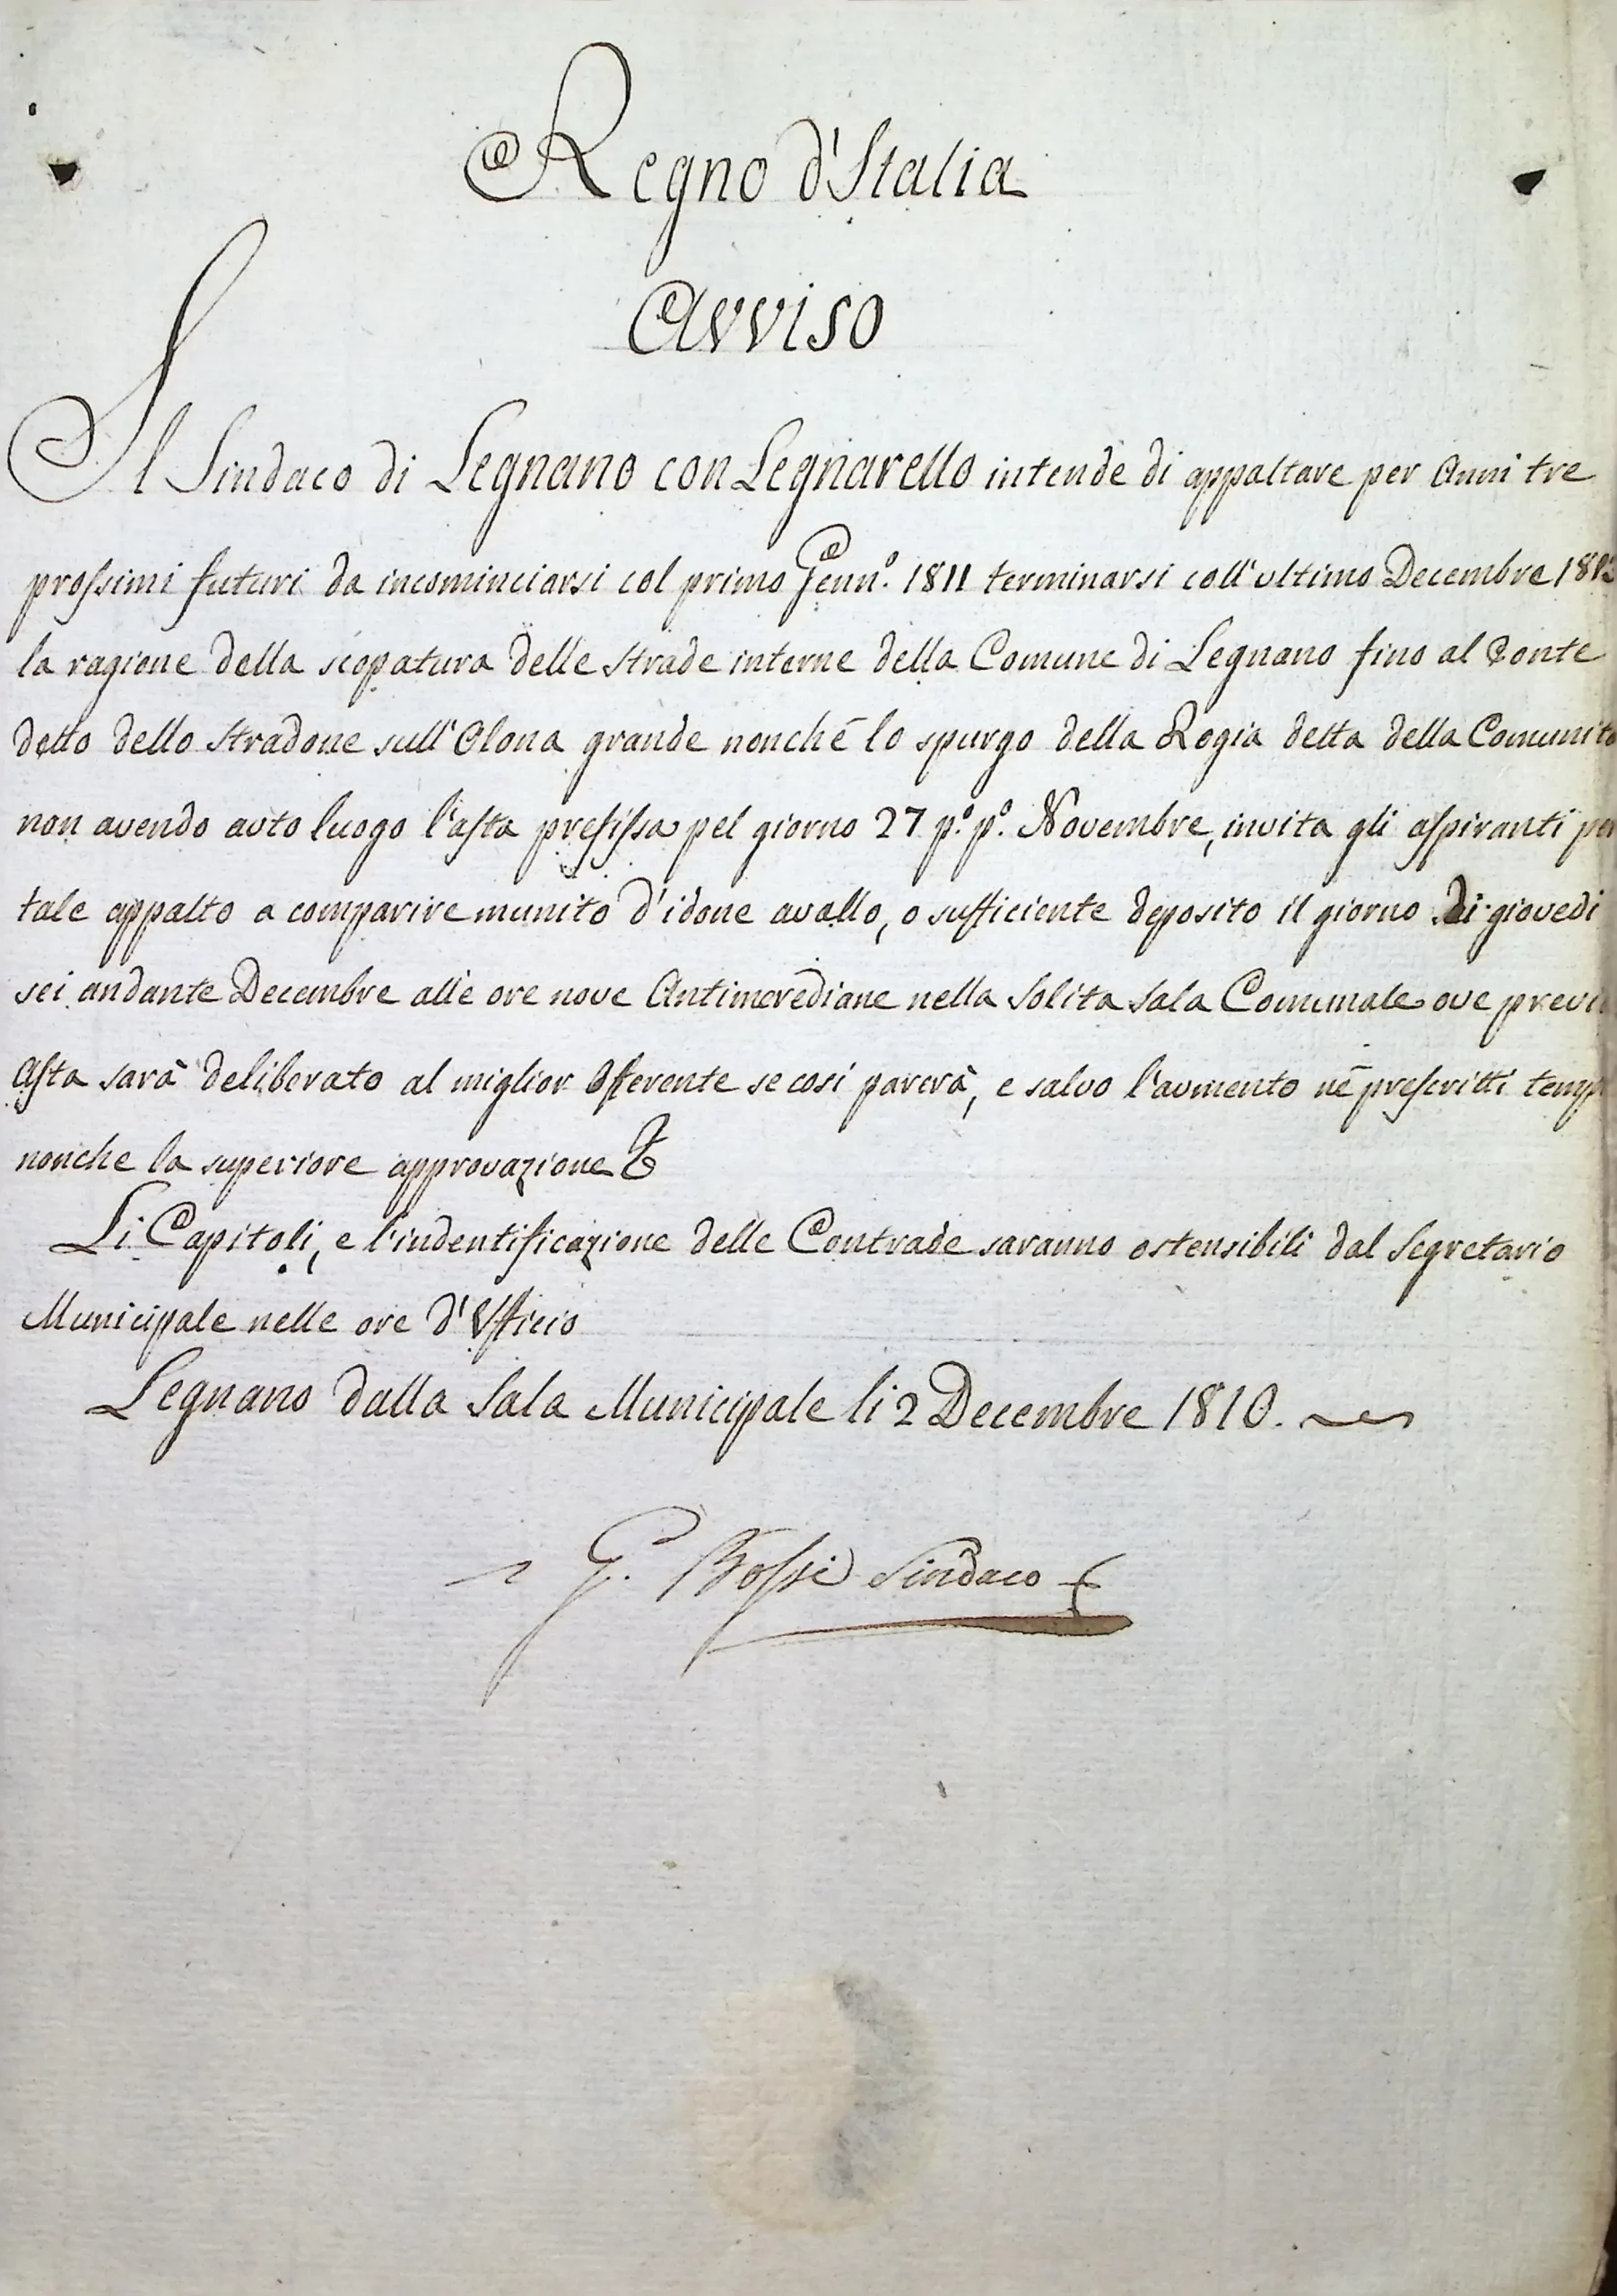 Regno d'Italia
Avviso
Il Sindaco di Legnano con Legnarello intende di appaltare per Anni tre
prossimi futuri da incominciarsi col primo Genn.º 1811 terminarsi coll'ultimo Decembre 1813
la ragione della scopatura delle strade interne della Comune di Legnano fino al Ponte
detto dello Stradone sull'Olona grande nonchè lo spurgo della Rogia detta della Comunità
non avendo avto luogo l'asta prefissa pel giorno 27 p.º p.º Novembre, invita gli aspiranti per
tale appalto a comparire munito d'idone avallo, o sufficiente deposito il giorno di giovedi
sei andante Decembre alle ore nove Antimerediane nella Solita Sala Comunale ove previa
Asta sarà deliberato al miglior Offerente se cosi parerà, e salvo l'aumento nè prescritti tempi
nonche la superiore approvazione
Li Capitoli, e l'indentificazione delle Contrade saranno ostensibili dal Segretario
Municipale nelle ore d'Ufficio
Legnano dalla Sala Municipale li 2 Decembre 1810.
G. Bossi Sindaco